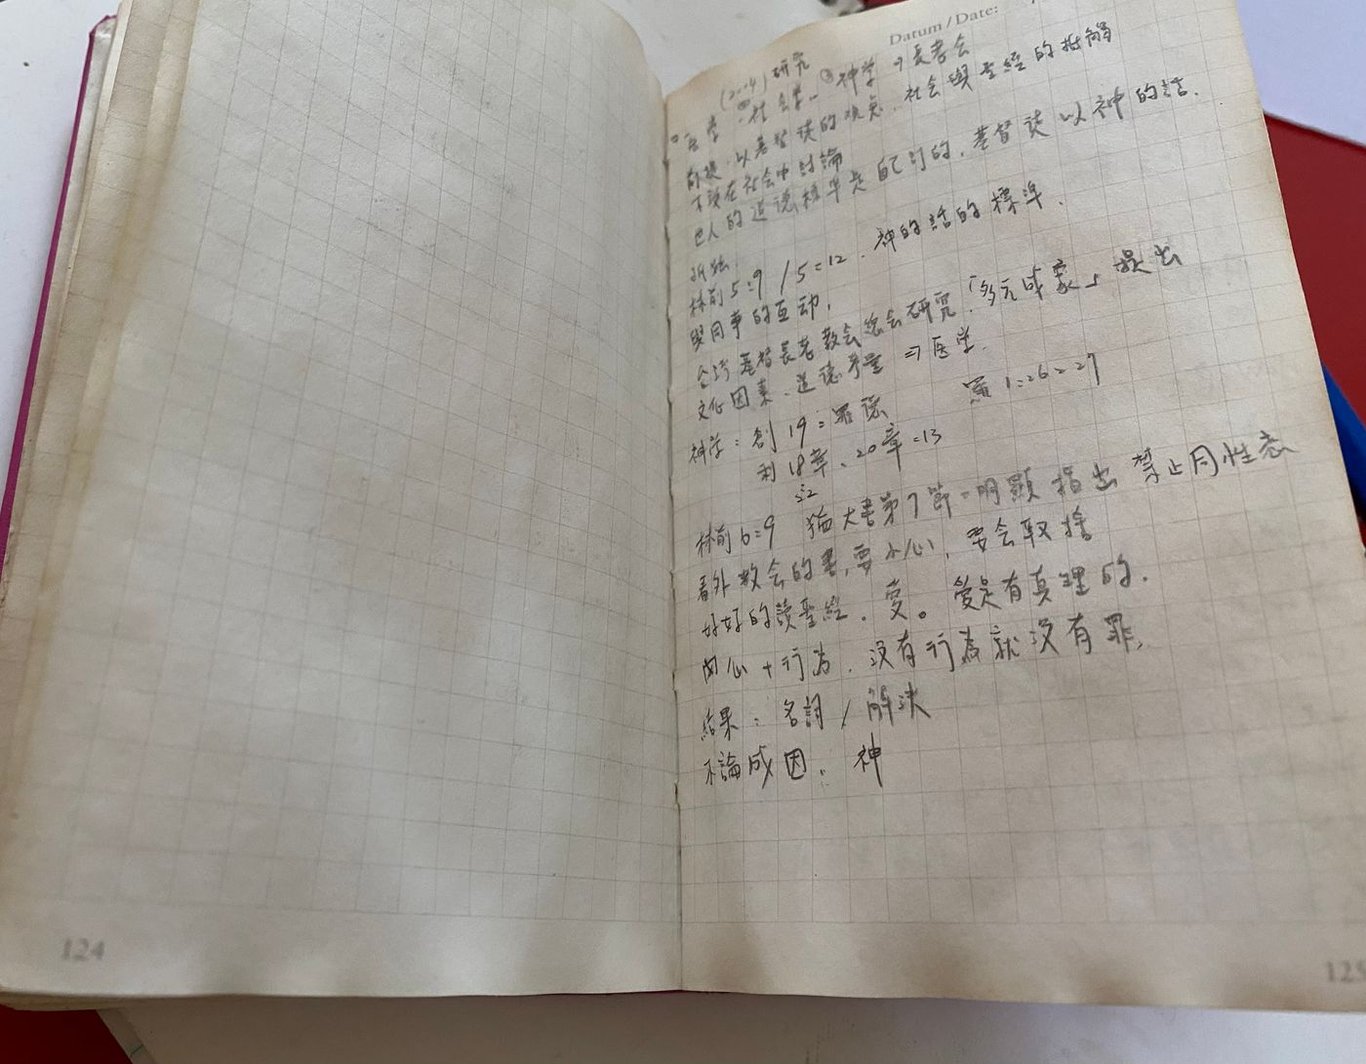 Datum / Date:
(2004) 研究
医学 - 社会学 - ③神学 → 長老会
前提. 以基督徒的观点. 社会與圣經的抵触
不該在社会中討論
世人的道德標準是自己订的. 基督徒以神的話.
抓姦
林前 5:9 / 5:12. 神的話的標準.
與同事的互动,
台湾基督長老教会总会研究.「多元成家」提出
文化因素. 道德考量 ⇒ 医学.
神学: 創 19: 罪惡
羅 1:26-27
利 18章、20章:13
:22
林前 6:9 猶大書第7節: 明顯指出 禁止同性恋
看外教会的書, 要小心, 要会取捨
好好的讀聖經. 愛。愛是有真理的.
内心 + 行为. 没有行為就没有罪,
結果: 名詞 / 解決
不論成因: 神
124
125